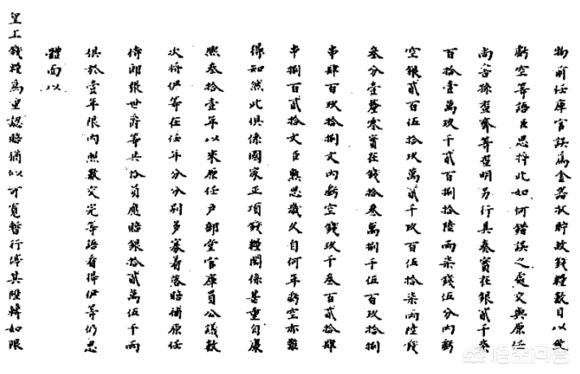 物前任庫官誤爲金器收貯故錢糧數目以致
虧空等語臣思將此如何錯誤之處交與原任
尚書孫查齊等查明另行具奏實在銀貳千柒
百拾壹萬玖千貳百捌拾陸兩柒錢伍分內虧
空銀貳百伍拾玖萬貳千玖百伍拾柒兩陸錢
叁分壹釐零實在錢拾叁萬捌千伍百玖拾捌
串肆百玖拾捌文內虧空錢玖千叁百貳拾肆
串捌百貳拾文臣熟思歲久自何年虧空亦難
得知然此俱係國家正項錢糧關係甚重自康
熙叁拾壹年以來原任戶部堂官庫員公議數
次將伊等在任年分分別多寡着落賠補原任
侍郎銀世爵等共拾員應賠銀拾貳萬伍千兩
俱於壹年限內照數交完等語看得伊等仍思
體面以
皇上錢糧爲重認賠猶似可寬暫行停其陞轉如限
悟空问答